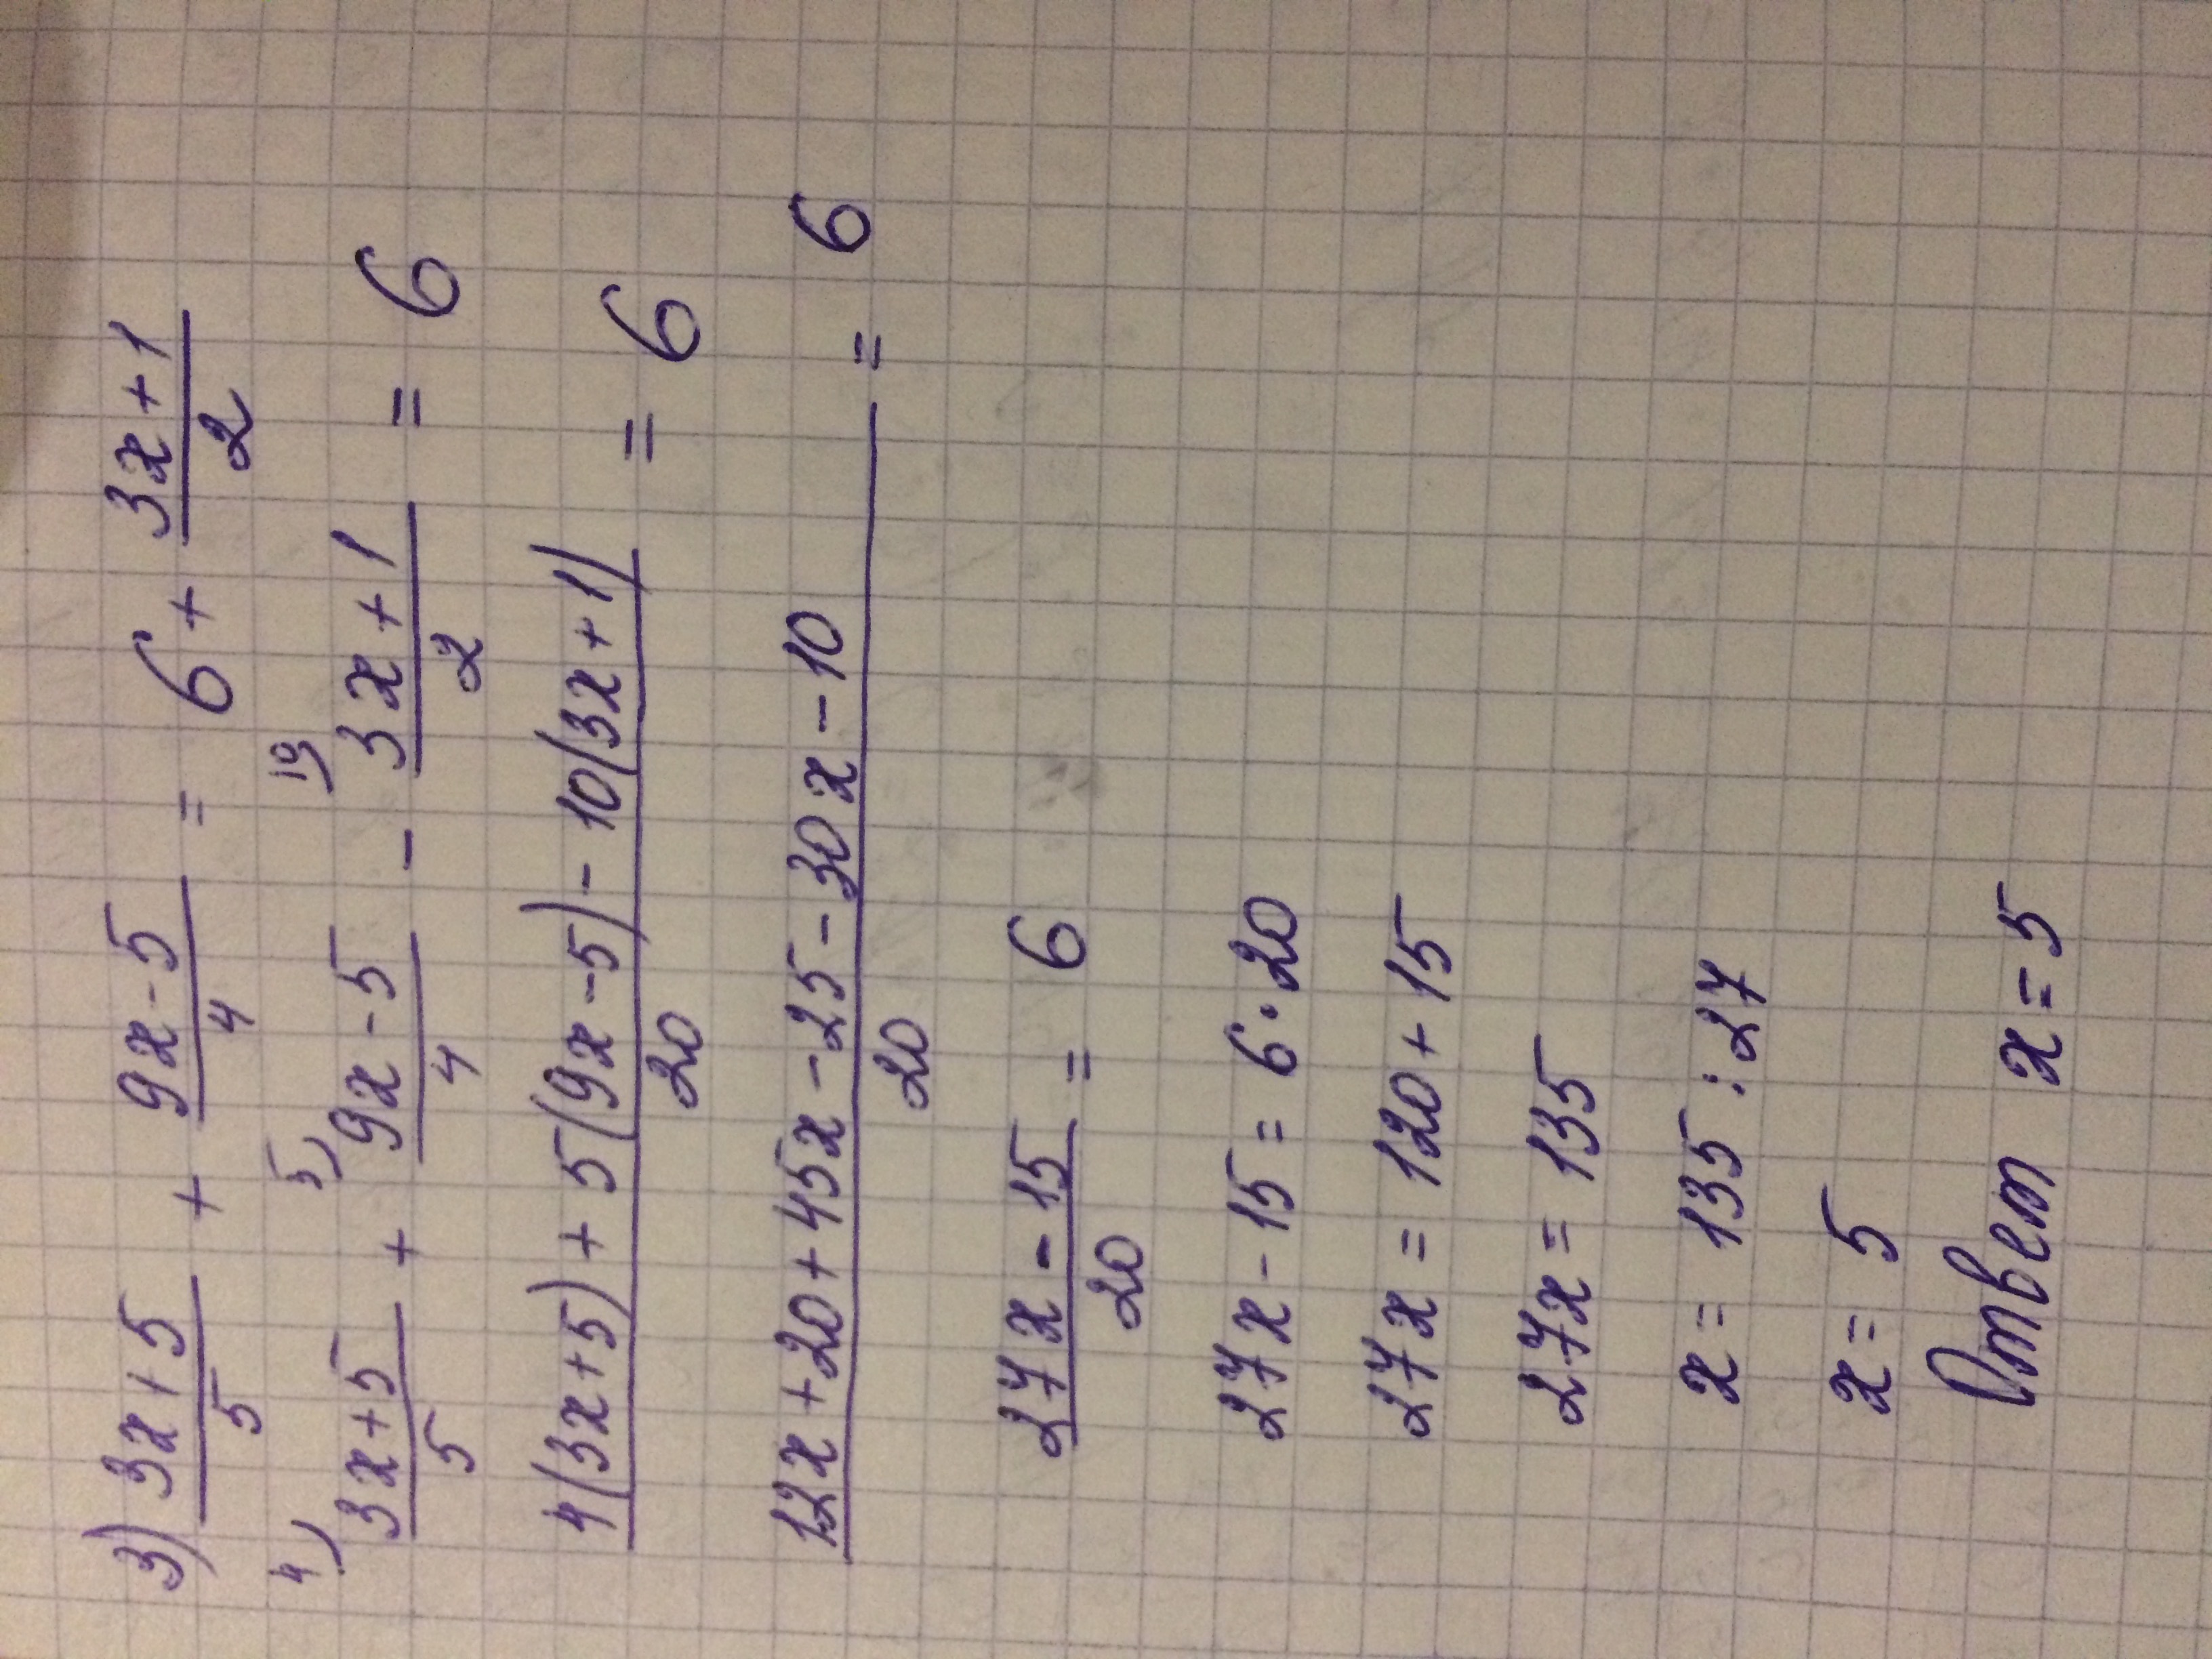 3) \frac{3x+5}{5} + \frac{9x-5}{4} = 6 + \frac{3x+1}{2}
4) \frac{3x+5}{5} + 5) \frac{9x-5}{4} - 10) \frac{3x+1}{2} = 6
\frac{4(3x+5)+5(9x-5)-10(3x+1)}{20} = 6
\frac{12x+20+45x-25-30x-10}{20} = 6
\frac{27x-15}{20} = 6
27x-15 = 6·20
27x = 120+15
27x = 135
x = 135:27
x = 5
Ответ x=5